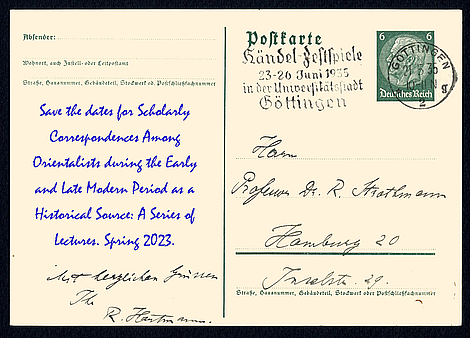 Absender:
Wohnort, auch Zustell- oder Leitpostamt
Straße, Hausnummer, Gebäudeteil, Stockwerk od. Postschließfachnummer
Save the dates for Scholarly
Correspondences Among
Orientalists during the Early
and Late Modern Period as a
Historical Source: A Series of
Lectures. Spring 2023.
Mit herzlichen Grüssen
Ihr
R. Hartmann.
Postkarte
Händel-Festspiele
23-26 Juni 1935
in der Universitätsstadt
Göttingen
6 6
Deutsches Reich
GÖTTINGEN
2
Herrn
Professor Dr. R. Strothmann
Hamburg 20
Inselstr. 29.
Straße, Hausnummer, Gebäudeteil, Stockwerk oder Postschließfachnummer